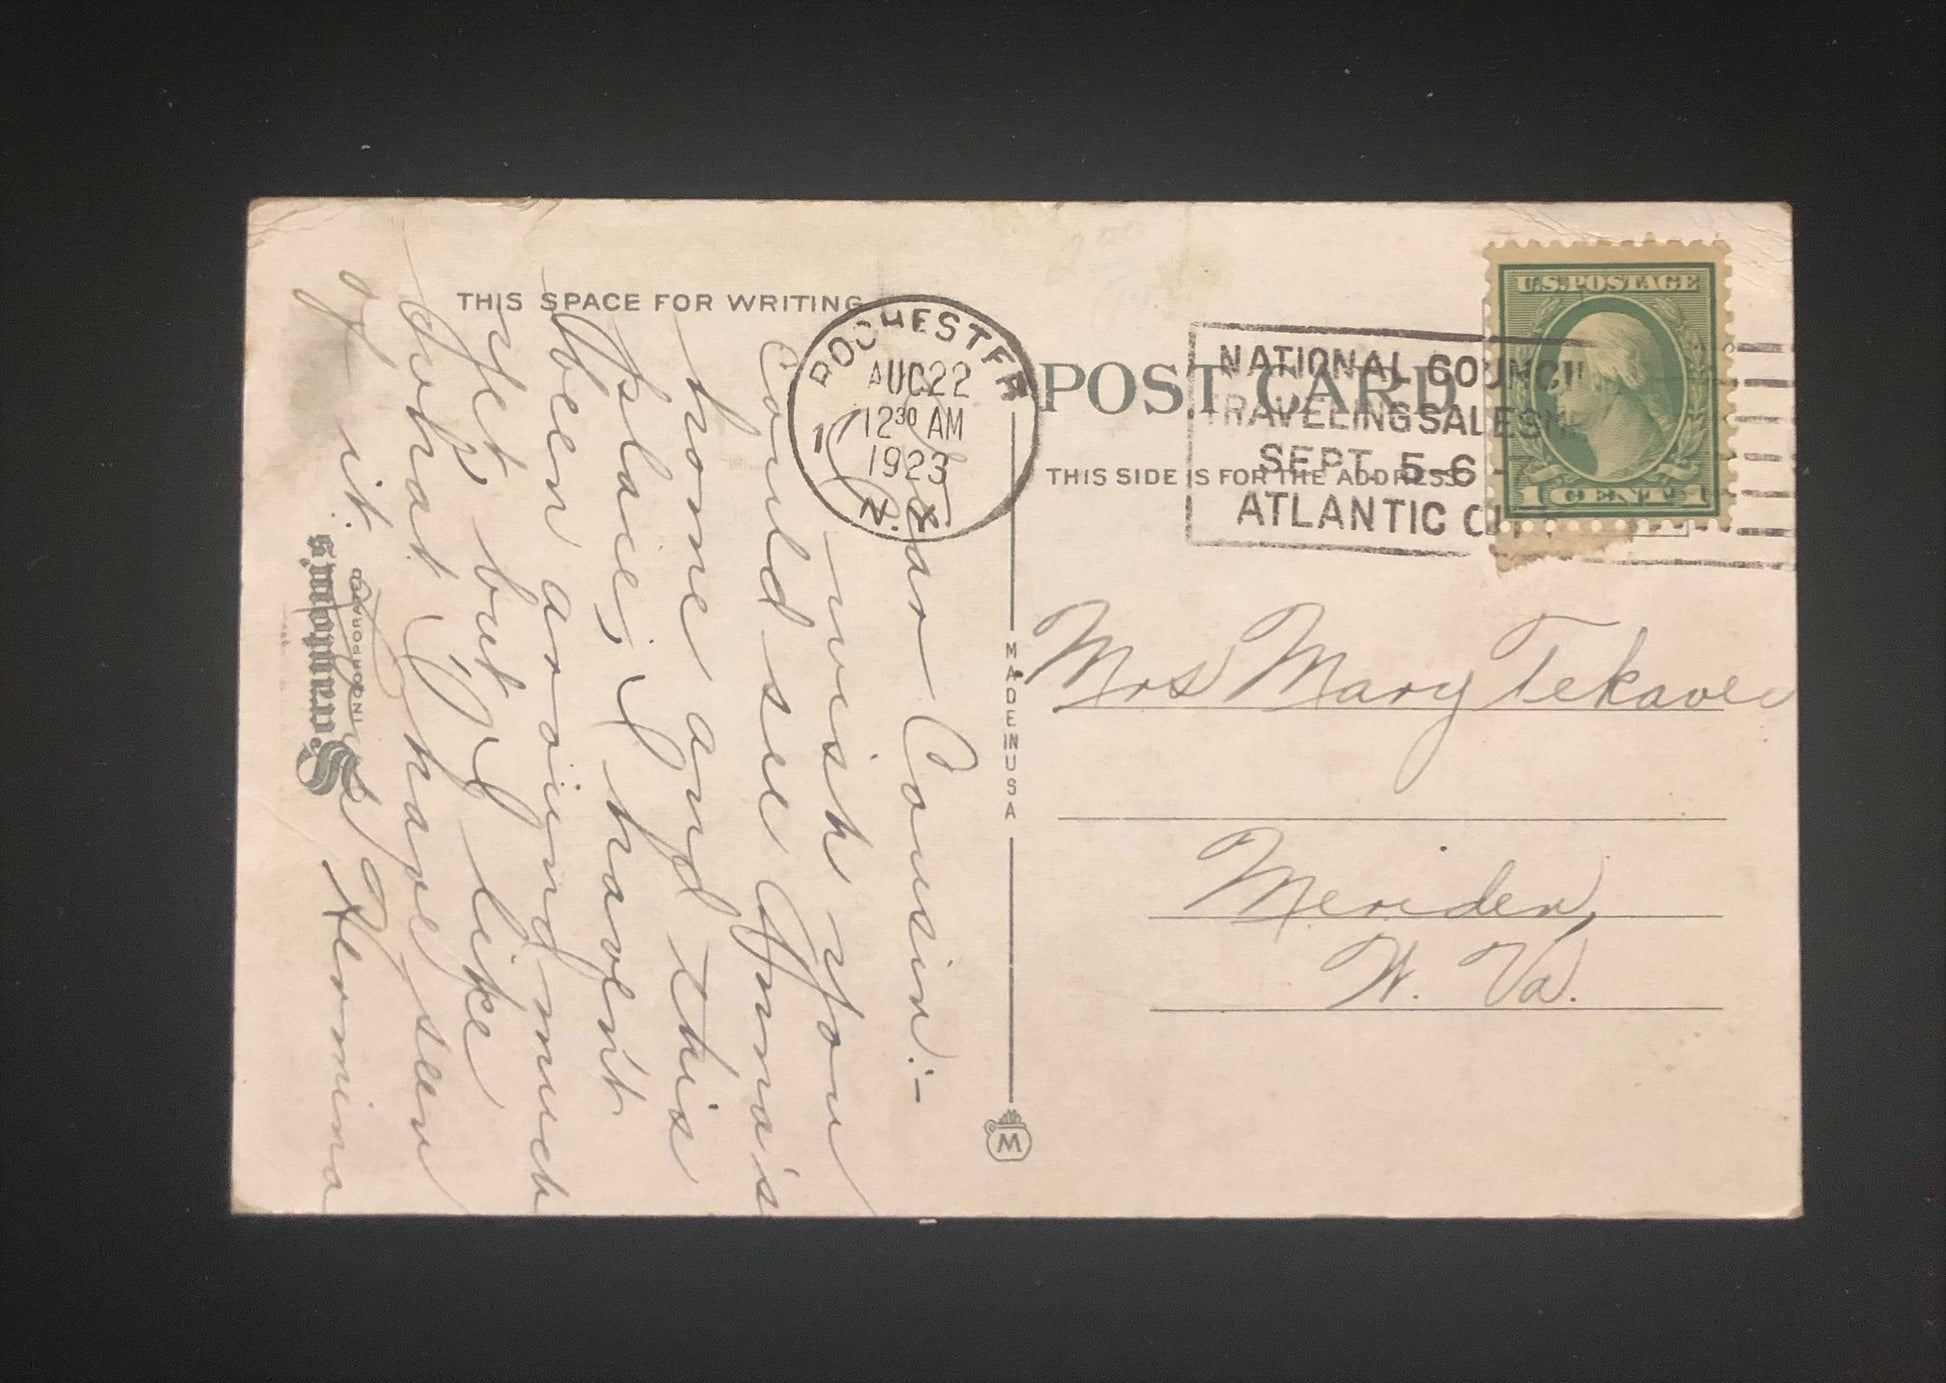 THIS SPACE FOR WRITING
Dear Cousin:-
wish you
could see Anna's
home and this
place; I havent
been around much
yet, but I like
what I have seen
of it.
Hermina
Scrantom's
INCORPORATED
ROCHESTER
AUG 22
12 30 AM
1923
N.Y.
MADE IN USA
M
POST CARD
THIS SIDE IS FOR THE ADDRESS
NATIONAL COUNCIL
TRAVELING SALESME
SEPT. 5-6-7
ATLANTIC CITY
U.S. POSTAGE
1 CENT 1
Mrs Mary Tekavec
Meriden,
W. Va.